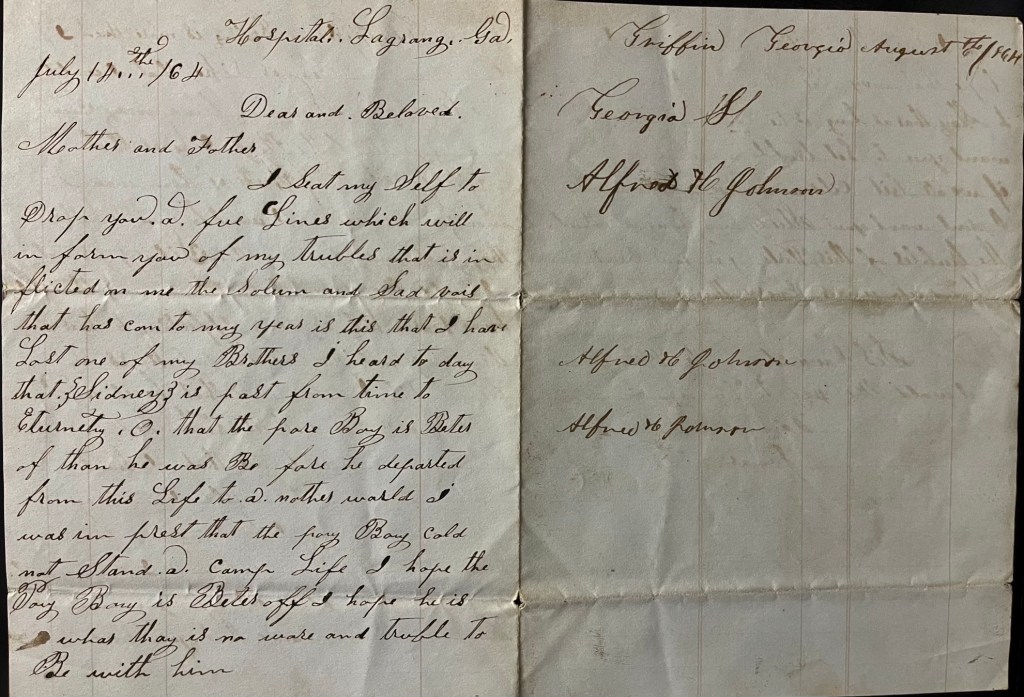 Hospital. Lagrang. Ga.
July 14th /64
Dear and. Beloved.
Mother and Father
I Seat my Self to
Drop you. a. fue Lines which will
in form you of my trubles that is in
flicted on me the Solum and Sad vois
that has com to my years is this that I have
Lost one of my Brothers I heard to day
that. {Sidney} is past from time to
Eturnety. O. that the pore Boy is Beter
of than he was Be fore he departed
from this Life to. a. nother world I
was im prest that the pory Boy cold
not Stand. a. Camp Life I hope the
Pory Boy is Beter off I hope he is
whar thay is no ware and truble to
Be with him
Griffin Georgia August /1864
Georgia
Alfred H Johnson
Alfred H Johnson
Alfred H Johnson